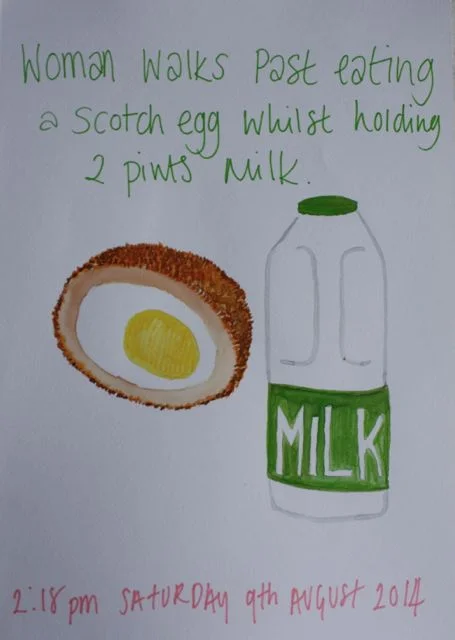 Woman walks past eating
a scotch egg whilst holding
2 pints milk.
MILK
2:18 pm SATURDAY 9th AUGUST 2014